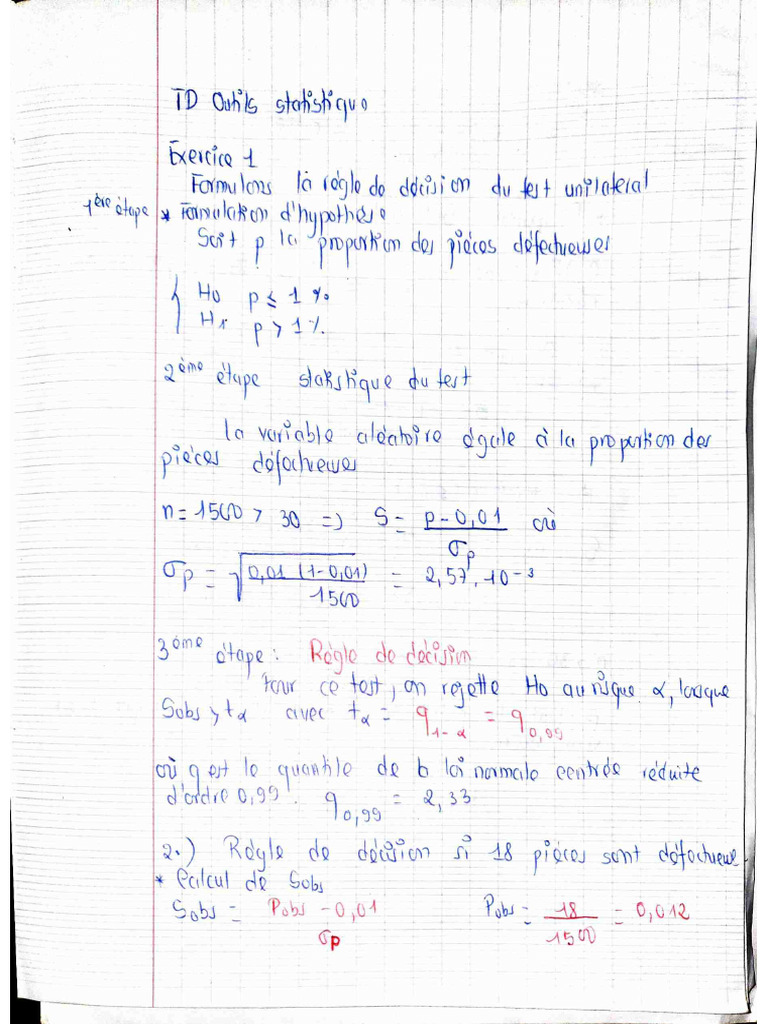 TD Outils statistique
Exercice 1
Formulons la règle de décision du test unilateral
1ère étape * Formulation d'hypothèse
Soit p la proportion des pièces défectueuses
{ H0 p ≤ 1 %
H1 p > 1 %.
2ème étape statistique du test
la variable aléatoire égale à la proportion des
pièces défectueuses
n = 1500 > 30 => S = (p - 0,01) / σp où
σp = √(0,01 (1-0,01) / 1500) = 2,57.10⁻³
3ème étape : Règle de décision
Pour ce test, on rejette H0 au risque α, lorsque
Sobs > tα avec tα = q1-α = q0,99
où q est le quantile de la loi normale centrée réduite
d'ordre 0,99. q0,99 = 2,33
2.) Règle de décision si 18 pièces sont défectueuse
* Calcul de Sobs
Sobs = (Pobs - 0,01) / σp Pobs = 18 / 1500 = 0,012